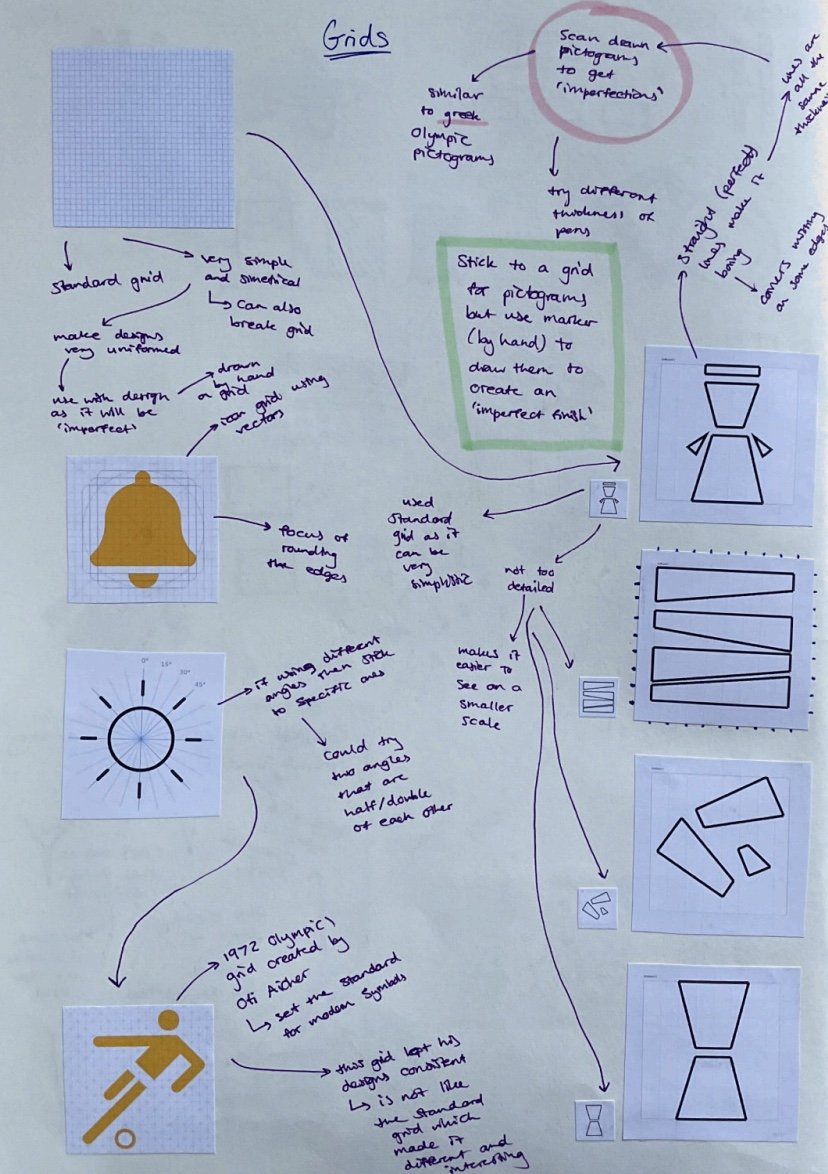 Grids
Scan drawn
pictograms
to get
'imperfections'
similar
to greek
Olympic
pictograms
try different
thickness of
pens
lines are
all the
same
thickness
straight (perfect)
lines make it
boring
corners missing
on some edges
Stick to a grid
for pictograms
but use marker
(by hand) to
draw them to
create an
'imperfect finish'
standard grid
very simple
and simetical
can also
break grid
make designs
very uniformed
use with design
as it will be
'imperfect'
drawn
by hand
on grid
icon grid using
vectors
focus of
rounding
the edges
used
standard
grid as it
can be
very
simplistic
not too
detailed
makes it
easier to
see on a
smaller
scale
0°
15°
30°
45°
if using different
angles then stick
to specific ones
could try
two angles
that are
half/double
of each other
1972 Olympic)
grid created by
Otl Aicher
set the standard
for modern symbols
this grid kept his
designs consistent
is not like
the standard
grid which
made it
different and
interesting